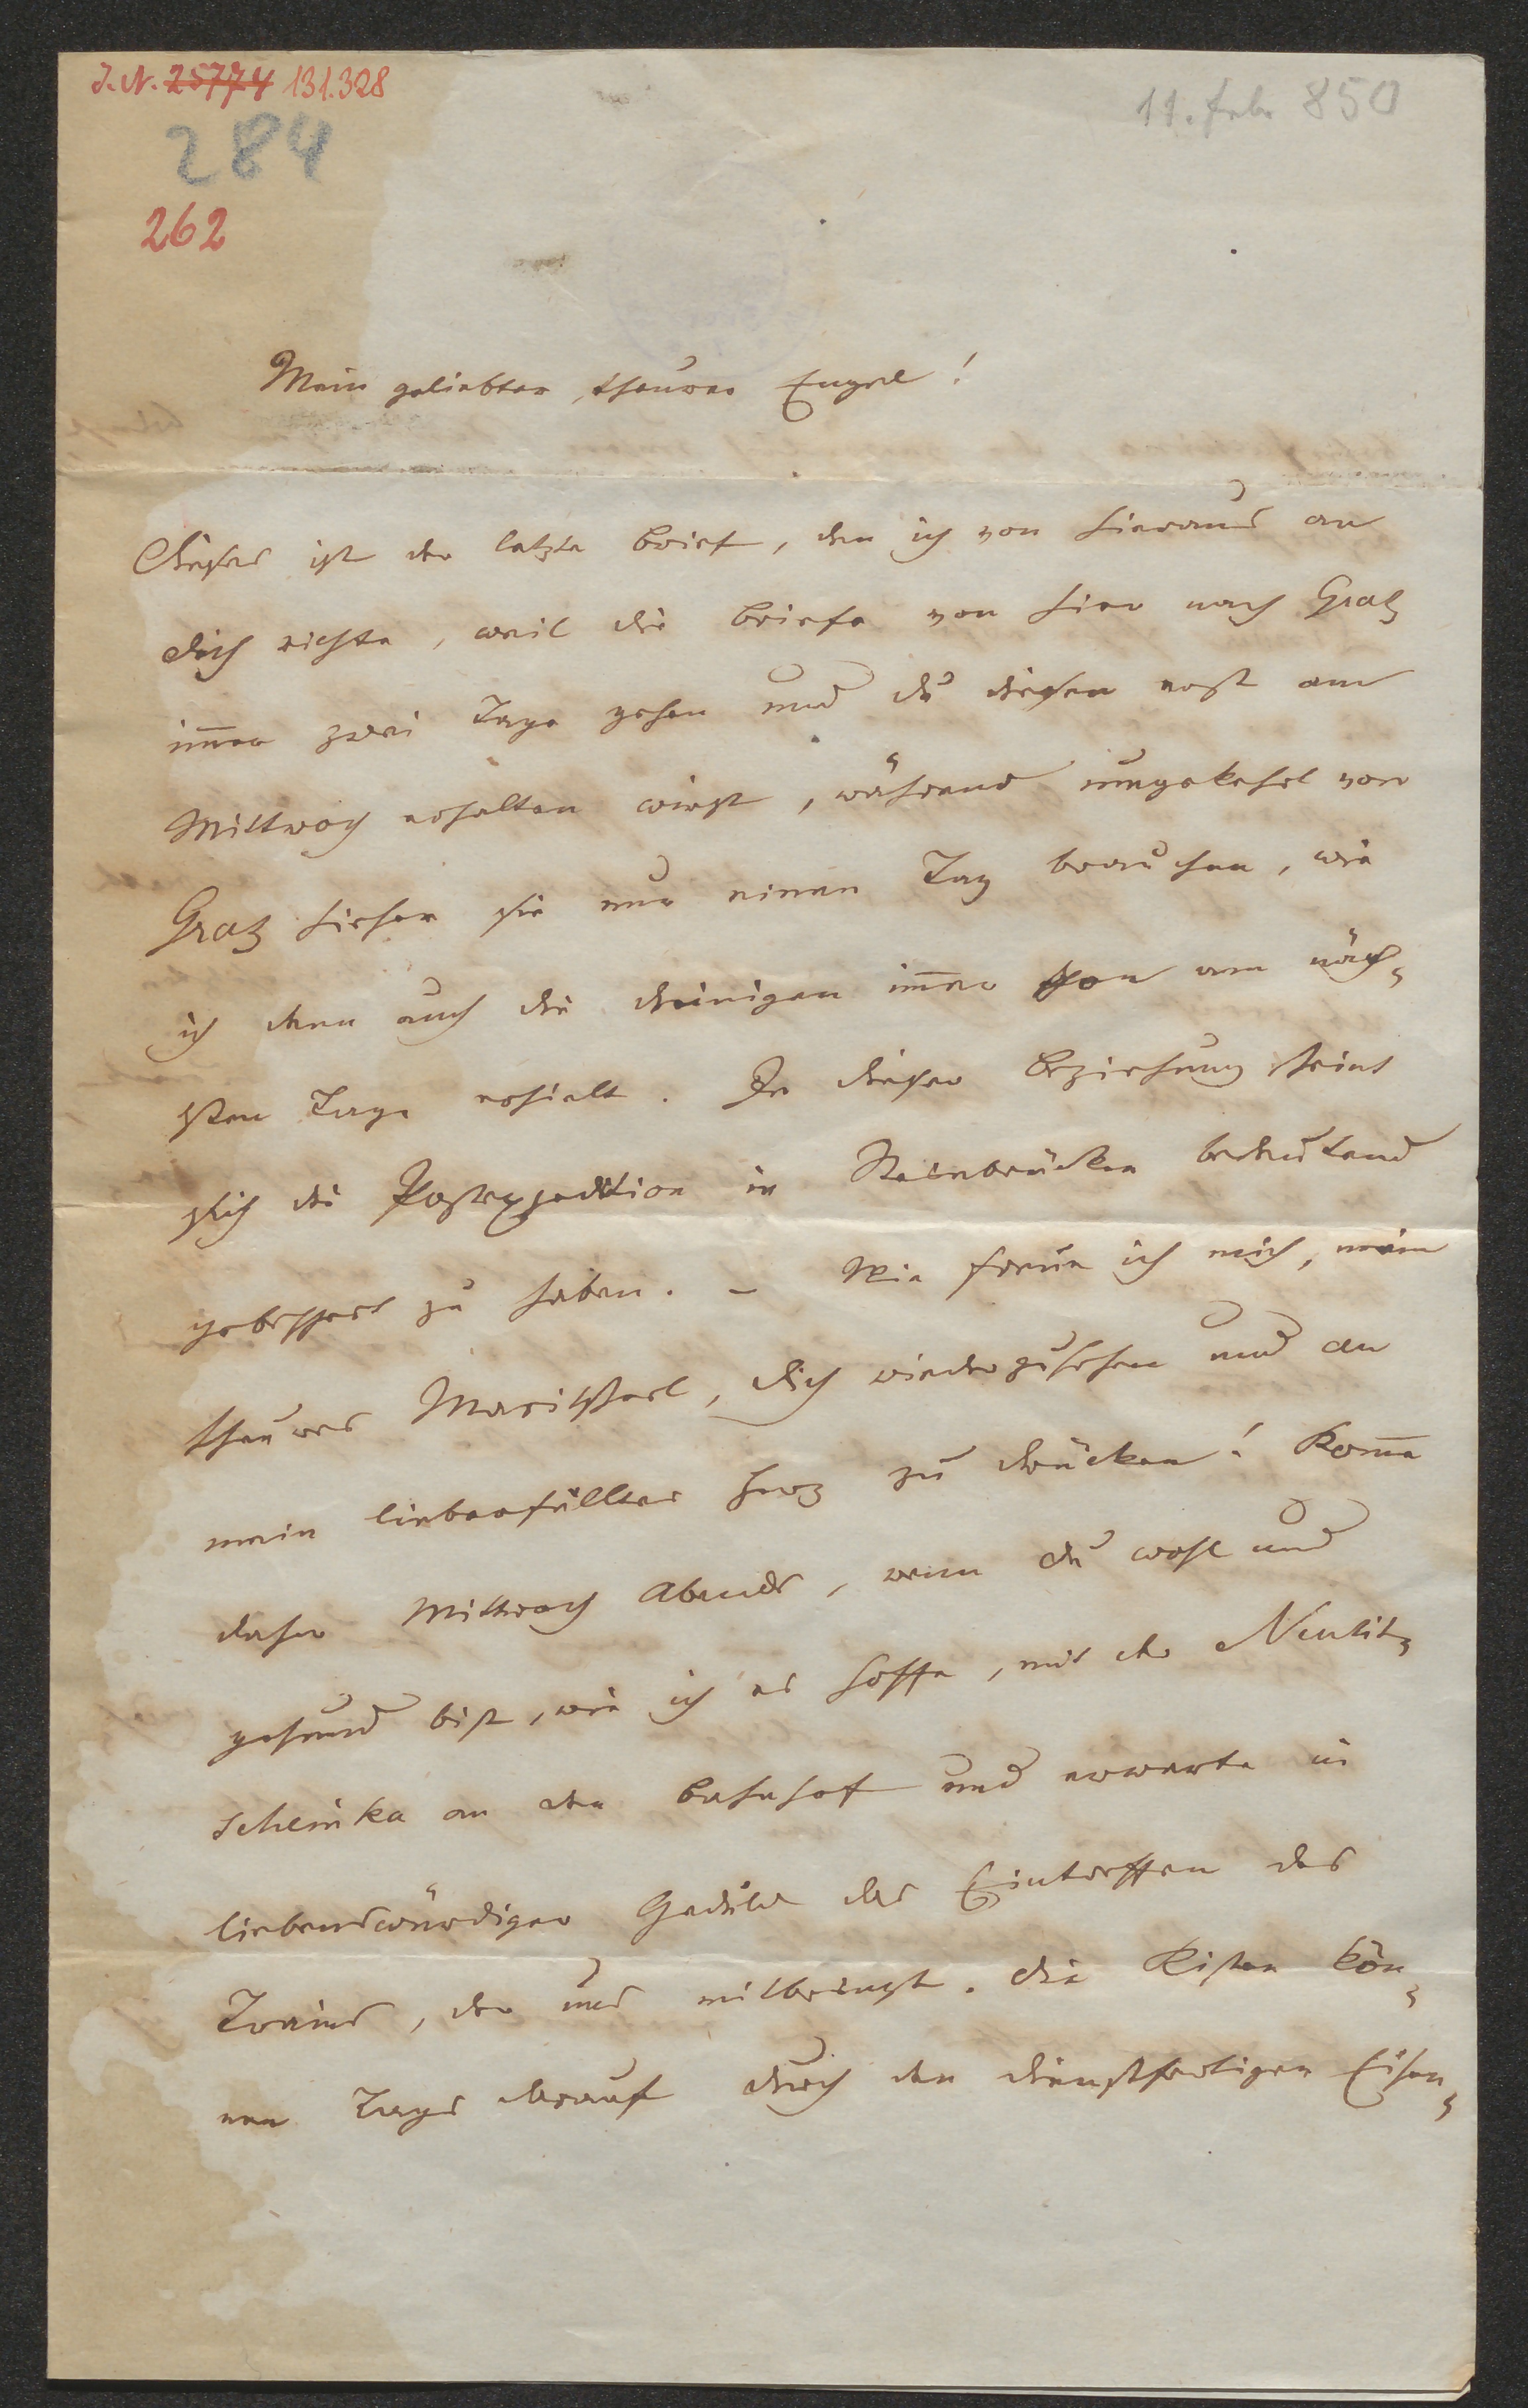 I. N. 25774 131.328
11. Feb. 850
284
262
Mein geliebter, theurer Engel!
Dieses ist der letzte Brief, den ich von hieraus an
dich richte, weil die Briefe von hier nach Gratz
im̄er zwei Tage gehen und du diesen erst am
Mittwoch erhalten wirst, während umgekehrt von
Gratz hieher sie nur einen Tag brauchen, wie
ich denn auch die deinigen im̄er schon am näch-
sten Tage erhielt. In dieser Beziehung scheint
sich die Postexpedition in Steinbrücken bedeutend
gebessert zu haben. – Wie freue ich mich, mein
theures, dich wiederzusehen und an
mein liebeerfülltes Herz zu drücken! Kom̄e
daher Mittwoch Abends, wenn du wohl und
gesund bist, wie ich es hoffe, mit der Neulit-
schemka an den Bahnhof und erwarte in
liebenswürdiger Geduld das Eintreffen des
Trains, der uns mitbringt. Die Kisten kön-
nen Tags darauf durch den dienstfertigen Eisen-